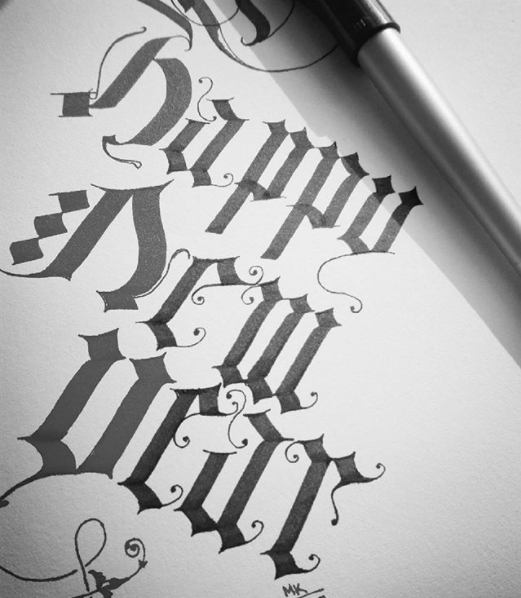 Happy
New
Year
MK